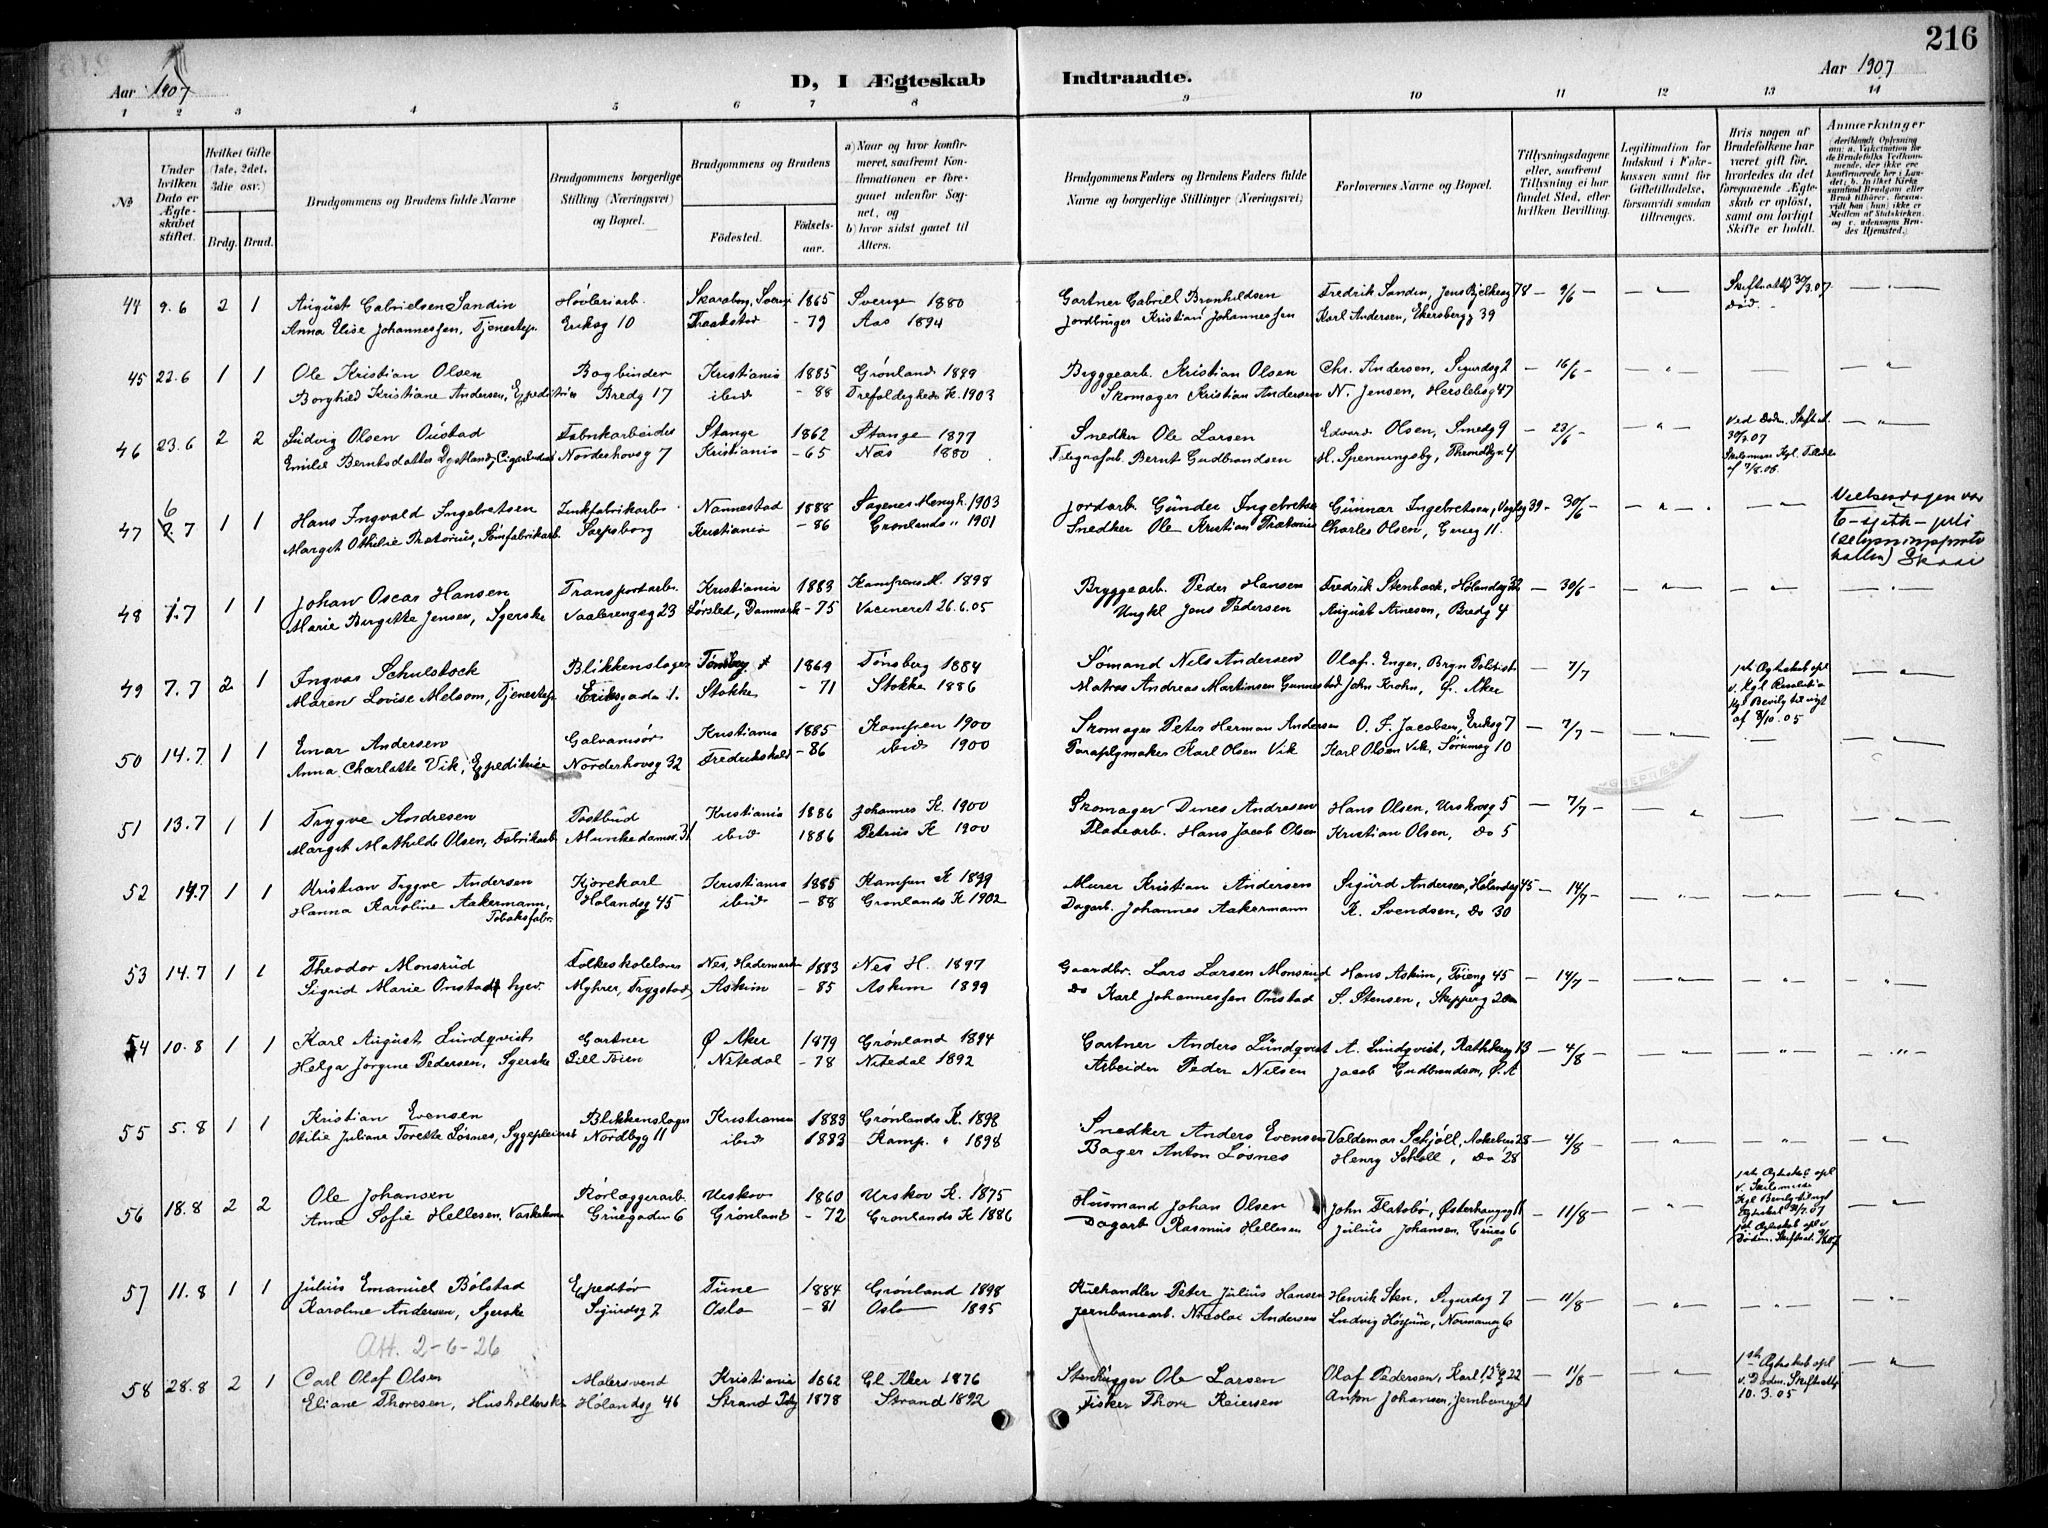 216
Aar 1907
D, I Ægteskab Indtraadte.
Aar 1907
1 2 3 4 5 6 7 8 9 10 11 12 13 14
No
Under hvilken Dato er Ægteskabet stiftet.
Hvilket Gifte (1ste, 2det, 3die osv.)
Brdg. Brud.
Brudgommens og Brudens fulde Navne
Brudgommens borgerlige Stilling (Næringsvei) og Bopæl.
Brudgommens og Brudens
Fødested. Fødselsaar.
a) Naar og hvor konfirmeret, saafremt Konfirmationen er foregaaet udenfor Sognet, og
b) hvor sidst gaaet til Alters.
Brudgommens Faders og Brudens Faders fulde Navne og borgerlige Stillinger (Næringsvei)
Forlovernes Navne og Bopæl.
Tillysningsdagene eller, saafremt Tillysning ei har fundet Sted, efter hvilken Bevilling.
Legitimation for Indskud i Fakkassen samt for Giftetilladelse, forsaavidt saadan tiltrænges.
Hvis nogen af Brudefolkene har været gift før, hvorledes da det foregaaende Ægteskab er opløst, samt om lovligt Skifte er holdt.
Anmærkninger
44 9.6 2 1 August Gabrielsen Sandin Høvleriarb. Skaraborg, Sverig 1865 Sverige 1880 Gartner Gabriel Bronhildsen Fredrik Sandin, Jens Bjelkesg 78 9/6 Skifteatt 30/3.07
Anna Elise Johannessen, Tjenestep. Eriksg 10 Kraakstad - 79 Aas 1894 Jordbruger Kristian Johannessen Karl Andersen, Ekersbergg 39 død.
45 22.6 1 1 Ole Kristian Olsen Bogbinder Kristiania 1885 Grønland 1899 Bryggearb. Kristian Olsen Chr. Andersen, Sigurdsg 2 16/6
Borghild Kristiane Andersen, Expeditrice Bredg 17 ibid - 88 Trefoldigheds K. 1903 Skomager Kristian Andersen N. Jensen, Herslebsg 47
46 23.6 2 2 Ludvig Olsen Oustad Fabrikarbeider Stange 1862 Stange 1877 Snedker Ole Larsen Edvard Olsen, Smedg 9 23/6
Emilie Berntsdatter Norderhovsg 7 Kristiania - 65 Næs 1880 Bernt Gudbrandsen H. Spenningsby, 4
47 6 7.7 1 1 Hans Ingvald Ingebretsen Zinkfabrikarb. Nannestad 1888 Sagenes Mengh. 1903 Jordarb. Gunder Ingebretsen Gunnar Ingebretsen, 39 30/6
Margit Othilie Prætorius, Sømfabrikarb. Sarpsborg Kristiania - 86 Grønlands " 1901 Snedker Ole Kristian Prætorius Charles Olsen, Grueg 11.
Vielsesdagen var 6-sjette-juli
48 7.7 1 1 Johan Oscar Hansen Transportarb. Kristiania 1883 Kampens M. 1898 Bryggearb. Peder Hansen Fredrik Stenbock, Hølandsg 32 30/6
Marie Birgitte Jensen, Syerske Vaalerengsg 23 Danmark - 75 Vacineret 26.6.05 Ungkl Jens Pedersen August Arnesen, Bredg 4
49 7.7 2 1 Ingvar Schulstock Blikkenslager Tønsbg 1869 Tønsberg 1884 Sømand Nils Andersen Olaf Enger, Bryn 7/7
Maren Lovise Melsom, Tjenestep Eriksgade 1. Stokke - 71 Stokke 1886 Matros Andreas Martinsen Gunnestad John Krohn, Ø. Aker
1ste Ægteskab opl v. Kgl Resolution Kgl Bevilg til nygt af 8/10.05
50 14.7 1 1 Einar Andersen Galvanisør Kristiania 1885 Kampen 1900 Skomager Peter Herman Andersen O. F. Jacobsen, Eriksg 7 7/7
Anna Charlotte Vik, Expeditrice Norderhovsg 32 Fredrikshald - 86 ibid 1900 Paraplymaker Karl Olsen Vik Karl Olsen Vik, Sørumsg 10
51 13.7 1 1 Trygve Andresen Postbud Kristiania 1886 Johannes K. 1900 Skomager Dines Andresen Hans Olsen, Urskovsg 5 7/7
Margit Mathilde Olsen, Fabrikarb. Munkedamsv. 31 ibid 1886 Petrus K 1900 Pladearb. Hans Jacob Olsen Kristian Olsen, do 5
52 14.7 1 1 Kristian Trygve Andersen Kjørekarl Kristiania 1885 Kampen K 1899 Murer Kristian Andersen Sigurd Andersen, Hølandsg 45 14/7
Hanna Karoline Aakermann, Tobaksfabr. Hølandsg 45 ibid - 88 Grønlands K 1902 Dagarb. Johannes Aakermann K. Svendsen, do 30
53 14.7 1 1 Theodor Monsrud Folkeskolelærer Nes, Hedemark 1883 Nes H. 1897 Gaardbr. Lars Larsen Monsrud Hans Askim, Tøieng 45 14/7
Sigrid Marie Onstad, hjev. Myhrer, Trygstad Askim - 85 Askim 1899 do Karl Johannessen Onstad S. Stensen, Skipperg 20
54 10.8 1 1 Karl August Lundqvist Gartner Ø Aker 1879 Grønland 1894 Gartner Anders Lundqvist A. Lundqvist, Rathkesg 13 4/8
Helga Jørgine Pedersen, Syerske Lill Tøien Nitedal - 78 Nitedal 1892 Arbeider Peder Nilsen Jacob Gudbrandsen, Ø. A
55 5.8 1 1 Kristian Evensen Blikkenslager Kristiania 1883 Grønlands K. 1898 Snedker Anders Evensen Valdemar Schjøll, Aakebergv 28 4/8
Otilie Juliane Torette Løsnes, Sygepleierske Nordbyg 11 ibid 1883 Kamp. " 1898 Bager Anton Løsnes Henry Schøll, do 28
56 18.8 2 2 Ole Johansen Rørlæggerarb. Urskov 1860 Urskov K. 1875 Husmand Johan Olsen John Flatebø, Østerhausg 11 11/8
Anna Sofie Hellesen, Vaskekone Gruegaden 6 Grønland - 72 Grønlands K 1886 Dagarb Rasmus Hellesen Julius Johansen, Grueg 6
57 11.8 1 1 Julius Emanuel Bølstad Expeditør Tune 1884 Grønland 1898 Kuehandler Peter Julius Hansen Henrik Sten, Sigurdsg 7 11/8
Karoline Andersen, Syerske Sigurdsg 7 Oslo - 81 Oslo 1895 Jernbanearb. Nicolai Andersen Ludvig Høisum, Normannsg 6
Att. 2-6-26
58 28.8 2 1 Carl Olaf Olsen Malersvend Kristiania 1862 Gl Aker 1876 Stenhugger Ole Larsen Olaf Pedersen, Karl 12 g 22 11/8
Eliane Thoresen, Husholderske Hølandsg 46 Strand 1878 Strand 1892 Fisker Thore Reiersen Anton Johansen, Jernbaneg 21
1ste Ægteskab opl v. Døden. Skifteatt 10.3.05